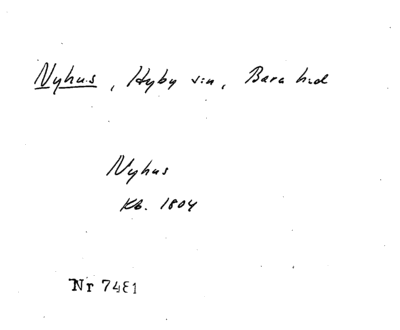 Nyhus, Hyby sn, Bara hd
Nyhus
Kb. 1804
Nr 7481